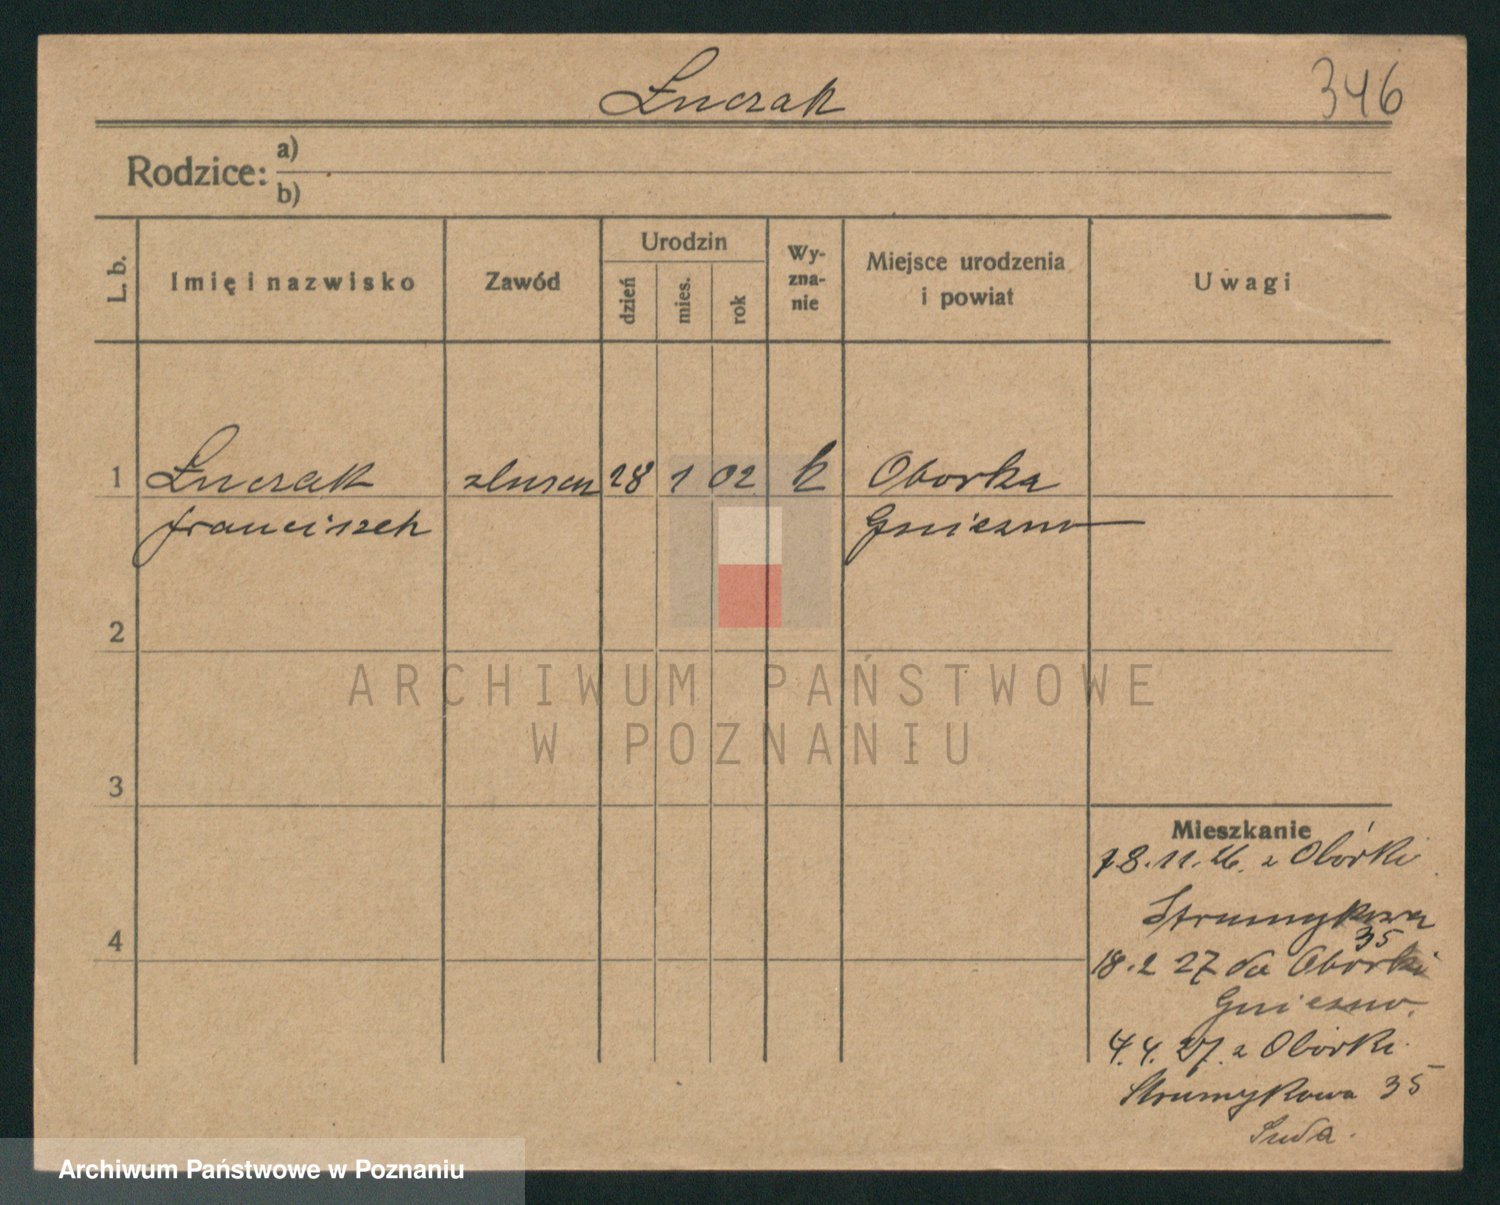 Łuczak
346
Rodzice: a)
b)
L. b.
Imię i nazwisko
Zawód
Urodzin
dzień
mies.
rok
Wy-
zna-
nie
Miejsce urodzenia
i powiat
Uwagi
1 Łuczak ślusarz 28 1 02 k Oborka
Franciszek Gniezno
2
ARCHIWUM PAŃSTWOWE
W POZNANIU
3
Mieszkanie
18.11.26. z Obórki
Strumykowa
35
4
18.2 27 do Obórki
Gniezno.
4.4.27. z Obórki
Strumykowa 35
Archiwum Państwowe w Poznaniu